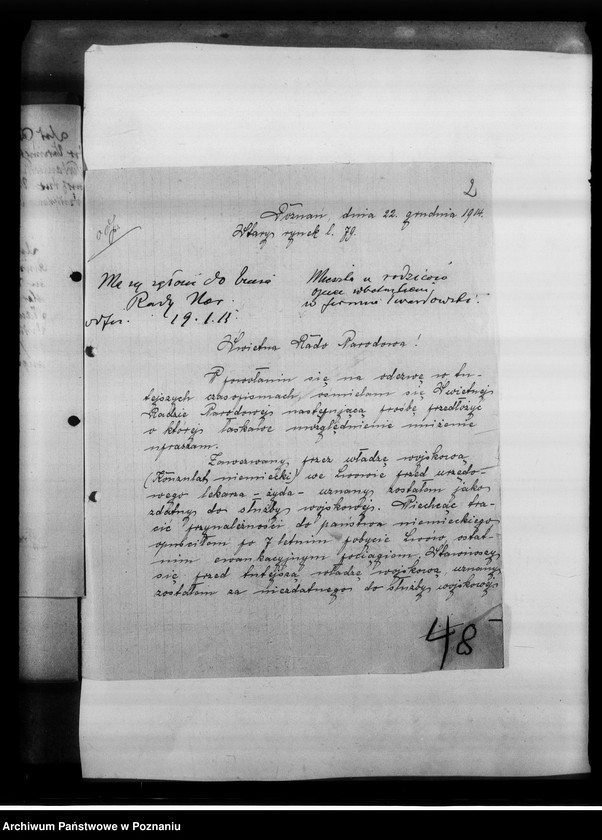 2
Poznań, dnia 22. grudnia 1914.
Stary rynek l. 79.
Ma się zgłosić do biura
Rady Nar.
19.1.15
Mieszka u rodziców
w firmie Twardowski.
Świetna Rado Narodowa!
Powołaniu się na odezwę w tu-
tejszych czasopismach ośmielam się Świetnej
Radzie Narodowej następującą prośbę przedłożyć
o której łaskawe uwzględnienie uniżenie
upraszam.
Zawezwany przez władzę wojskową
(Konzulat niemiecki) we Lwowie przed urzędo-
wego lekarza - żyda - uznany zostałem jako
zdatny do służby wojskowej. Niechcąc tra-
cić przynależności do państwa niemieckiego
opuściłem po 7 letnim pobycie Lwów, ostat-
nim ewakuacyjnym pociągiem. Stawiwszy
się przed tutejszą władzę wojskową uznany
zostałem za niezdatnego do służby wojskowej
48
Archiwum Państwowe w Poznaniu